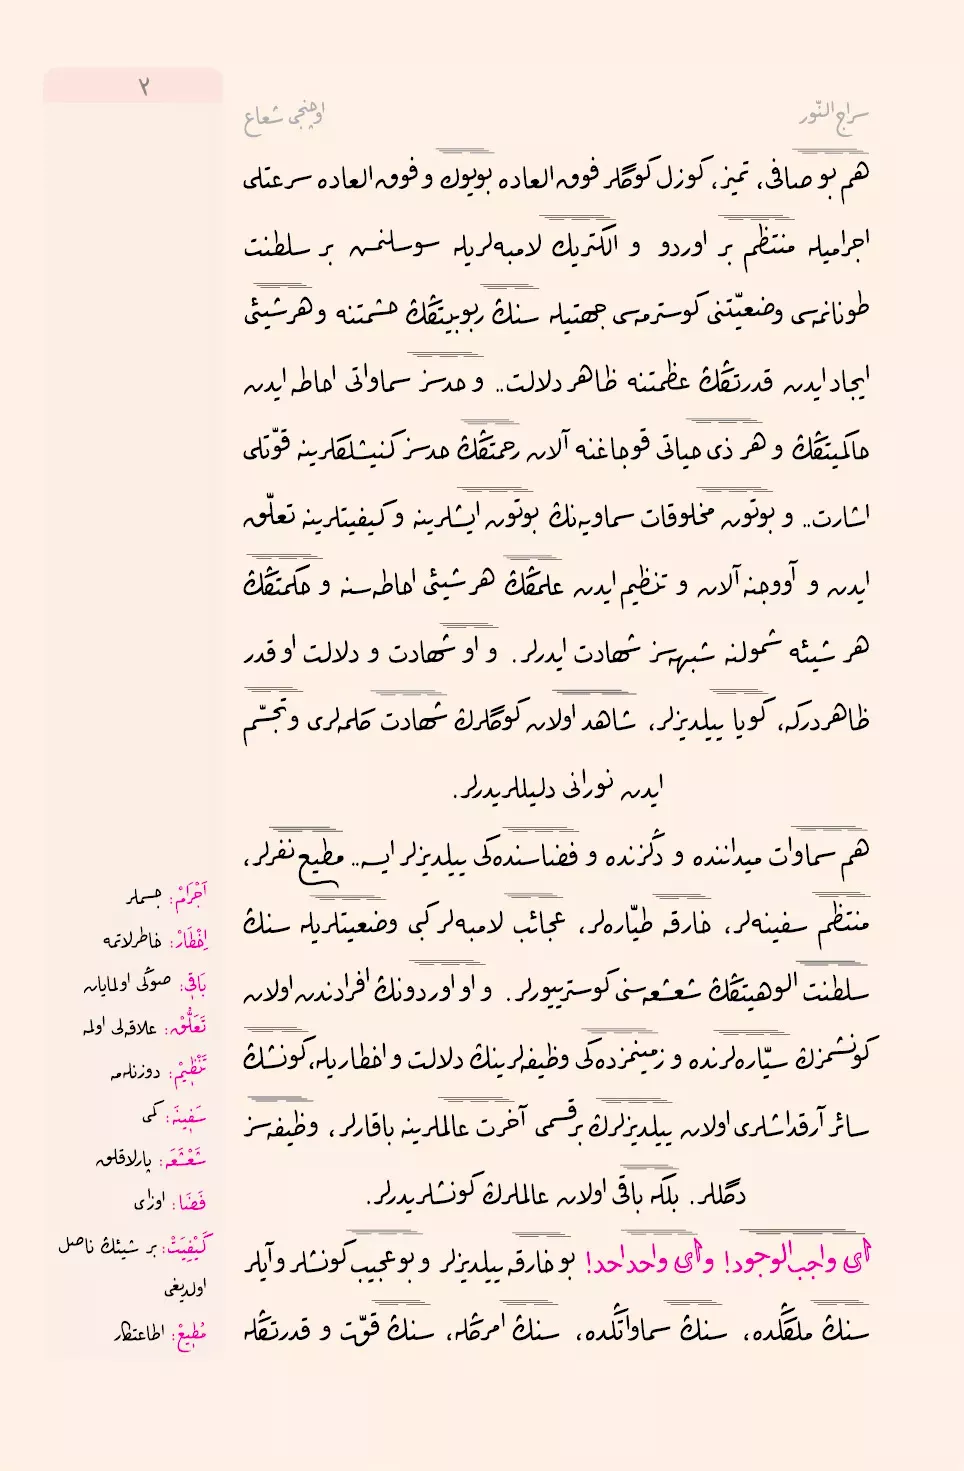 ٢
سراج النّور
اوچنجی شعاع
هم بو صافی، تمیز، كوزل كوكلر فوق العاده بویوك و فوق العاده سرعتلی
اجرامیله منتظم بر اوردو و الكتریك لامبه‌لریله سوسلنمش بر سلطنت
طونانمه‌سی وضعیّتنی كوسترمه‌سی جهتیله سنڭ ربوبیتڭڭ حشمتنه و هر شیئی
ایجاد ایدن قدرتڭڭ عظمتنه ظاهر دلالت.. و حدسز سماواتی احاطه ایدن
حاكمیتڭڭ و هر ذی حیاتی قوجاغنه آلان رحمتڭڭ حدسز كنیشلكلرینه قوّتلی
اشارت.. و بوتون مخلوقات سماویه‌نڭ بوتون ایشلرینه و كیفیتلرینه تعلّق
ایدن و آووجنه آلان و تنظیم ایدن علمڭڭ هر شیئی احاطه‌سنه و حكمتڭڭ
هر شیئه شمولنه شبهه‌سز شهادت ایدرلر. و او شهادت و دلالت او قدر
ظاهردركه، كویا ییلدیزلر، شاهد اولان كوكلرڭ شهادت كلمه‌لری و تجسّم
ایدن نورانی دلیللریدرلر.
هم سماوات میداننده و دڭزنده و فضاسنده‌كی ییلدیزلر ایسه.. مطیع نفرلر،
منتظم سفینه‌لر، خارقه طیّاره‌لر، عجائب لامبه‌لر كبی وضعیتلریله سنڭ
سلطنت الوهیتڭڭ شعشعه‌سنی كوسترییورلر. و او اوردونڭ افرادندن اولان
كونشمزڭ سیّاره‌لرنده و زمینمزده‌كی وظیفه‌لرینڭ دلالت و اخطاریله، كونشڭ
سائر آرقداشلری اولان ییلدیزلرڭ بر قسمی آخرت عالملرینه باقارلر، وظیفه‌سز
دگللر. بلكه باقی اولان عالملرڭ كونشلریدرلر.
ای واجب الوجود! و ای واحد احد! بو خارقه ییلدیزلر و بو عجیب كونشلر و آیلر
سنڭ ملكڭده، سنڭ سماواتڭده، سنڭ امرڭله، سنڭ قوّت و قدرتڭله
اَجْرَامْ: جسملر
اِخْطَارْ: خاطرلاتمه
بَاقِی: صوڭی اولمایان
تَعَلُّقْ: علاقه‌لی اولمه
تَنْظِیمْ: دوزنلەمه
سَفِینَه: كمی
شَعْشَعَه: پارلاقلق
فَضَا: اوزای
كَیْفِیَتْ: بر شیئڭ ناصل
اولدیغی
مُطِیعْ: اطاعتكار